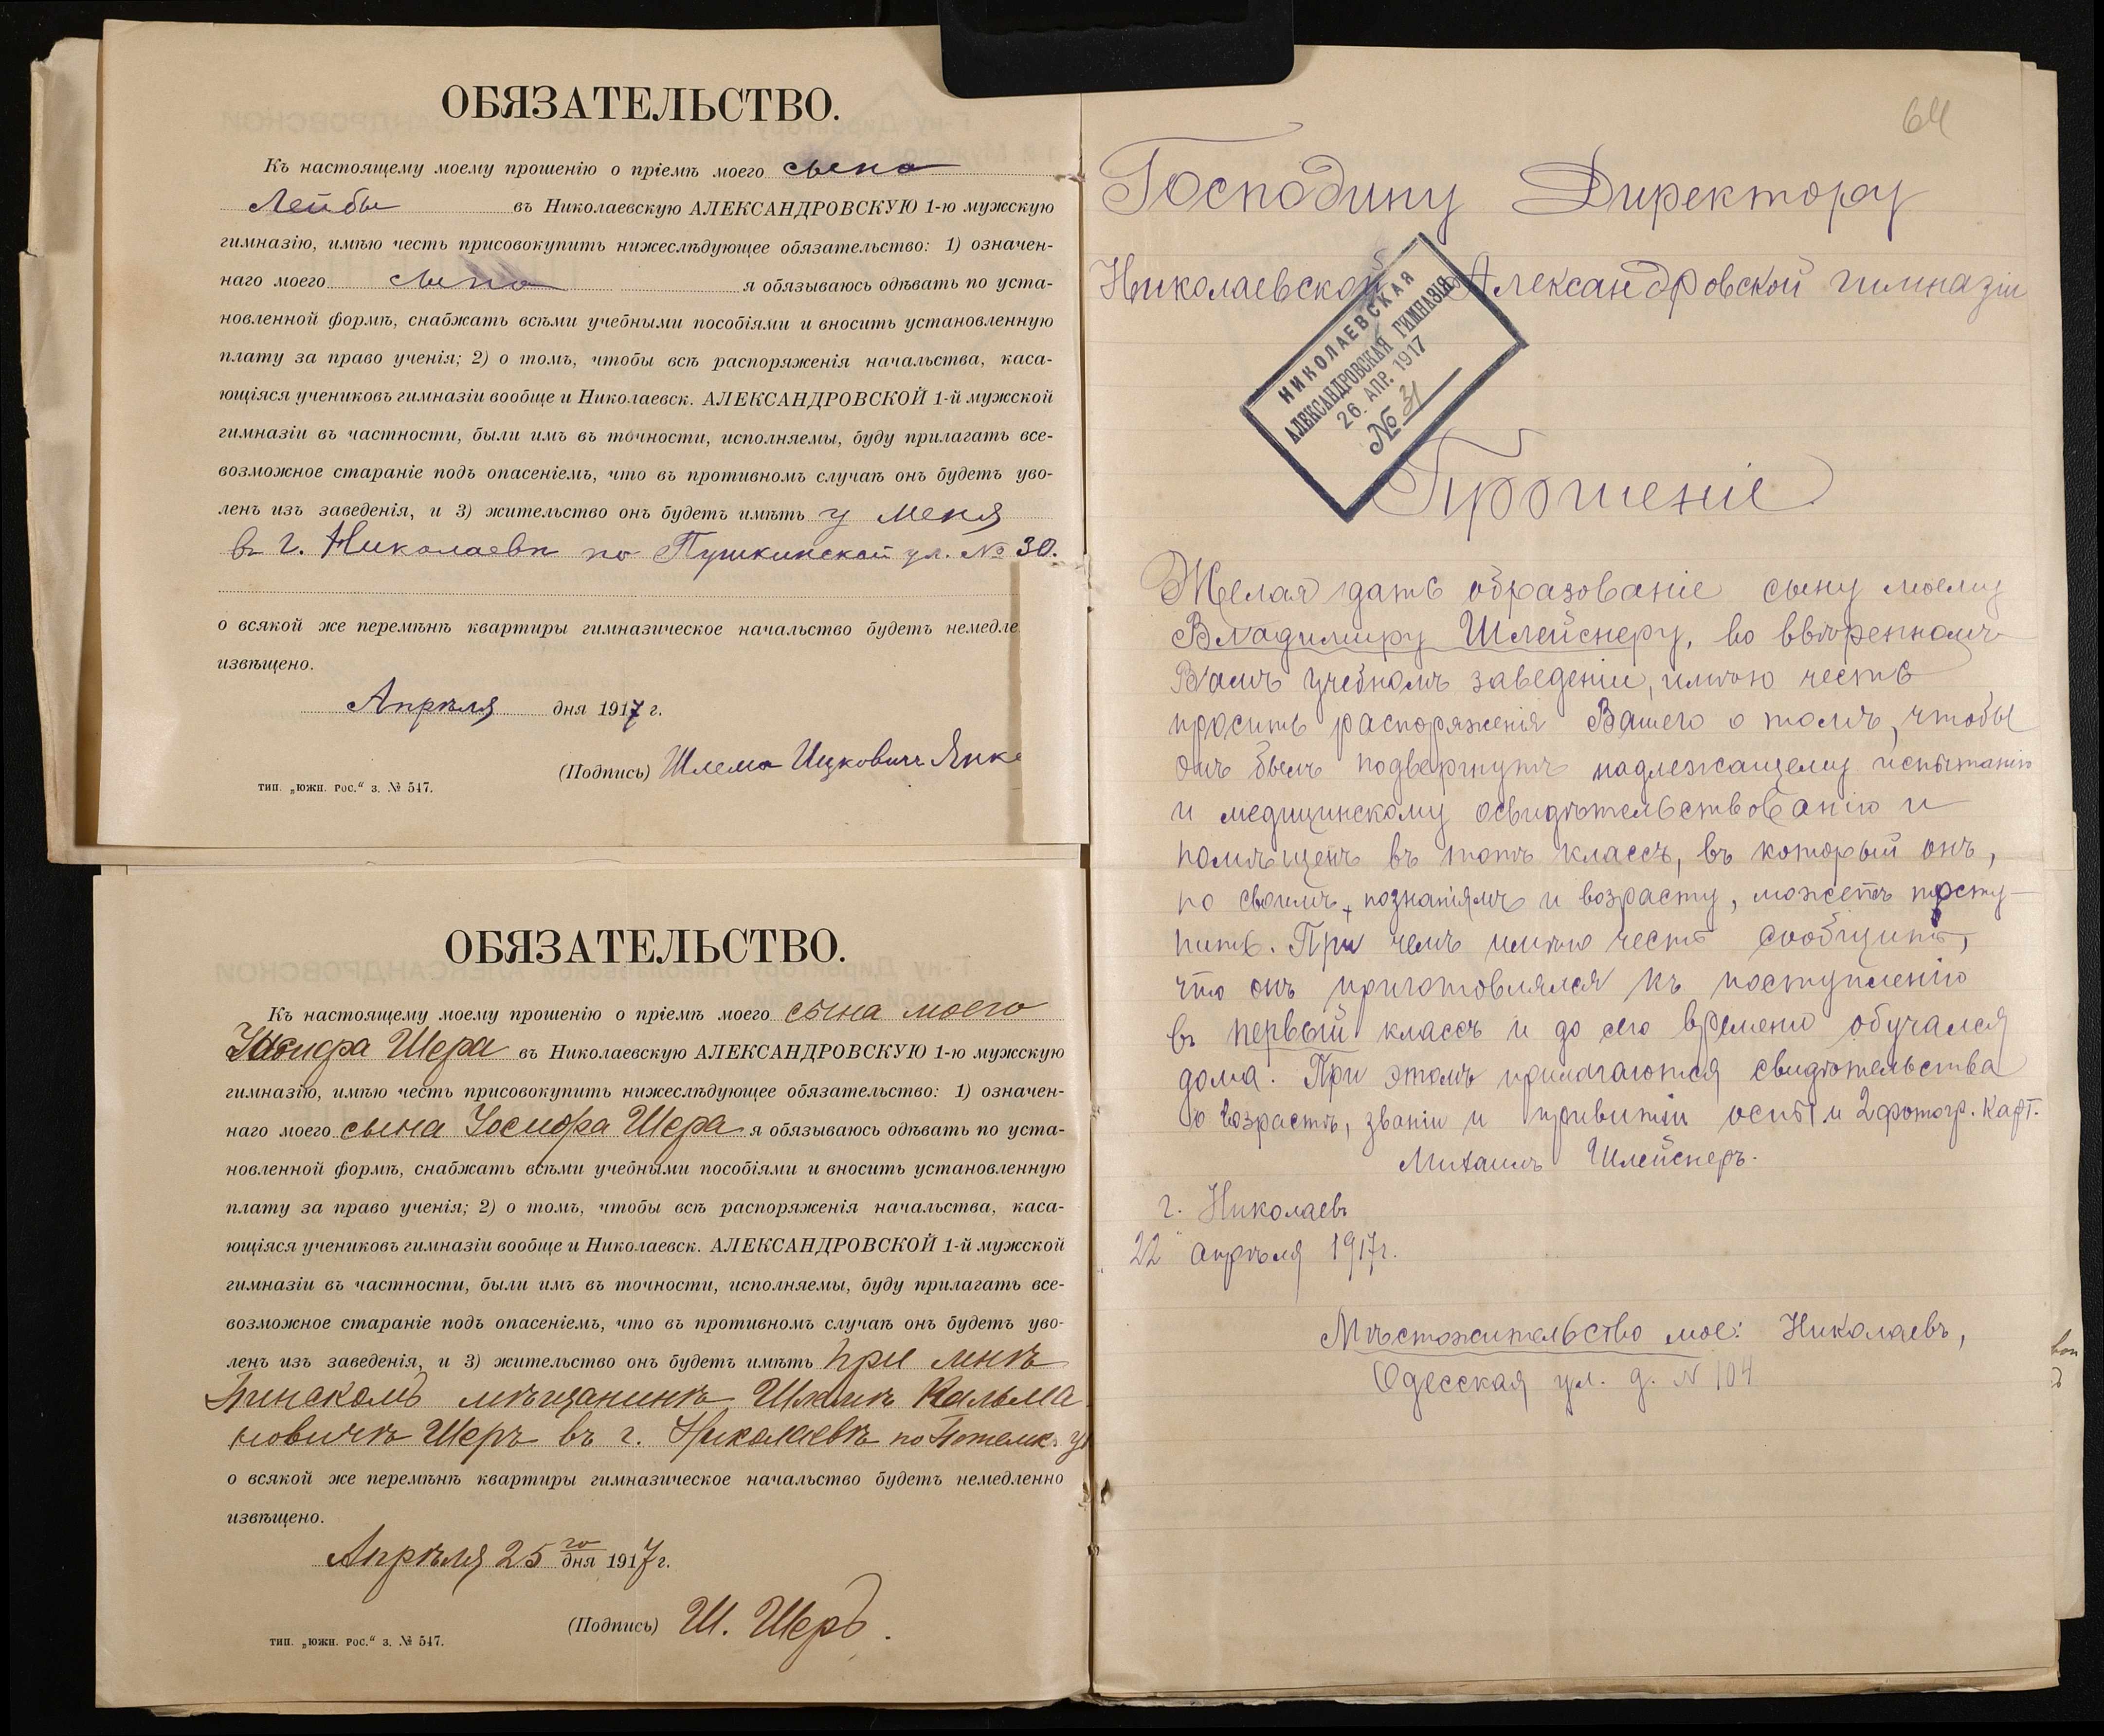 ОБЯЗАТЕЛЬСТВО.
Къ настоящему моему прошенію о пріемѣ моего сына
Лейбы въ Николаевскую АЛЕКСАНДРОВСКУЮ 1-ю мужскую
гимназію, имѣю честь присовокупить нижеслѣдующее обязательство: 1) означен-
наго моего сына я обязываюсь одѣвать по уста-
новленной формѣ, снабжать всѣми учебными пособіями и вносить установленную
плату за право ученія; 2) о томъ, чтобы всѣ распоряженія начальства, каса-
ющіяся учениковъ гимназіи вообще и Николаевск. АЛЕКСАНДРОВСКОЙ 1-й мужской
гимназіи въ частности, были имъ въ точности, исполняемы, буду прилагать все-
возможное стараніе подъ опасеніемъ, что въ противномъ случаѣ онъ будетъ уво-
ленъ изъ заведенія, и 3) жительство онъ будетъ имѣть у меня
въ г. Николаевѣ по Пушкинской ул. № 30.
о всякой же перемѣнѣ квартиры гимназическое начальство будетъ немедле
извѣщено.
Апрѣля дня 1917 г.
(Подпись) Шлема Ицковичъ Янке
тип. „южн. рос.“ з. № 547.
ОБЯЗАТЕЛЬСТВО.
Къ настоящему моему прошенію о пріемѣ моего сына моего
Іосифа Шера въ Николаевскую АЛЕКСАНДРОВСКУЮ 1-ю мужскую
гимназію, имѣю честь присовокупить нижеслѣдующее обязательство: 1) означен-
наго моего сына Іосифа Шера я обязываюсь одѣвать по уста-
новленной формѣ, снабжать всѣми учебными пособіями и вносить установленную
плату за право ученія; 2) о томъ, чтобы всѣ распоряженія начальства, каса-
ющіяся учениковъ гимназіи вообще и Николаевск. АЛЕКСАНДРОВСКОЙ 1-й мужской
гимназіи въ частности, были имъ въ точности, исполняемы, буду прилагать все-
возможное стараніе подъ опасеніемъ, что въ противномъ случаѣ онъ будетъ уво-
ленъ изъ заведенія, и 3) жительство онъ будетъ имѣть при мнѣ
Пинскомъ мѣщанинѣ Кальма
новичѣ Шеръ въ г. Николаевѣ по Потемк. ул
о всякой же перемѣнѣ квартиры гимназическое начальство будетъ немедленно
извѣщено.
Апрѣля 25го дня 1917 г.
(Подпись) Ш. Шеръ.
тип. „южн. рос.“ з. № 547.
64
Господину Директору
Николаевской Александровской гимназіи
НИКОЛАЕВСКАЯ
АЛЕКСАНДРОВСКАЯ ГИМНАЗІЯ
26. АПР. 1917
№ 31
Прошеніе
Желая дать образованіе сыну моему
Владимиру Шлейснеру, во ввѣренномъ
Вамъ учебномъ заведеніи, имѣю честь
просить распоряженія Вашего о томъ, чтобы
онъ былъ подвергнутъ надлежащему испытанію
и медицинскому освидѣтельствованію и
помѣщенъ въ тотъ классъ, въ который онъ,
по своимъ познаніямъ и возрасту, можетъ посту-
пить. При чемъ имѣю честь сообщить,
что онъ приготовлялся къ поступленію
въ первый классъ и до сего времени обучался
дома. При этомъ прилагаются свидѣтельства
о возрастѣ, званіи и привитіи оспы и 2 фотогр. карт.
Михаилъ Шлейснеръ.
г. Николаевъ
22 апрѣля 1917 г.
Мѣстожительство мое: Николаевъ,
Одесская ул. д. № 104